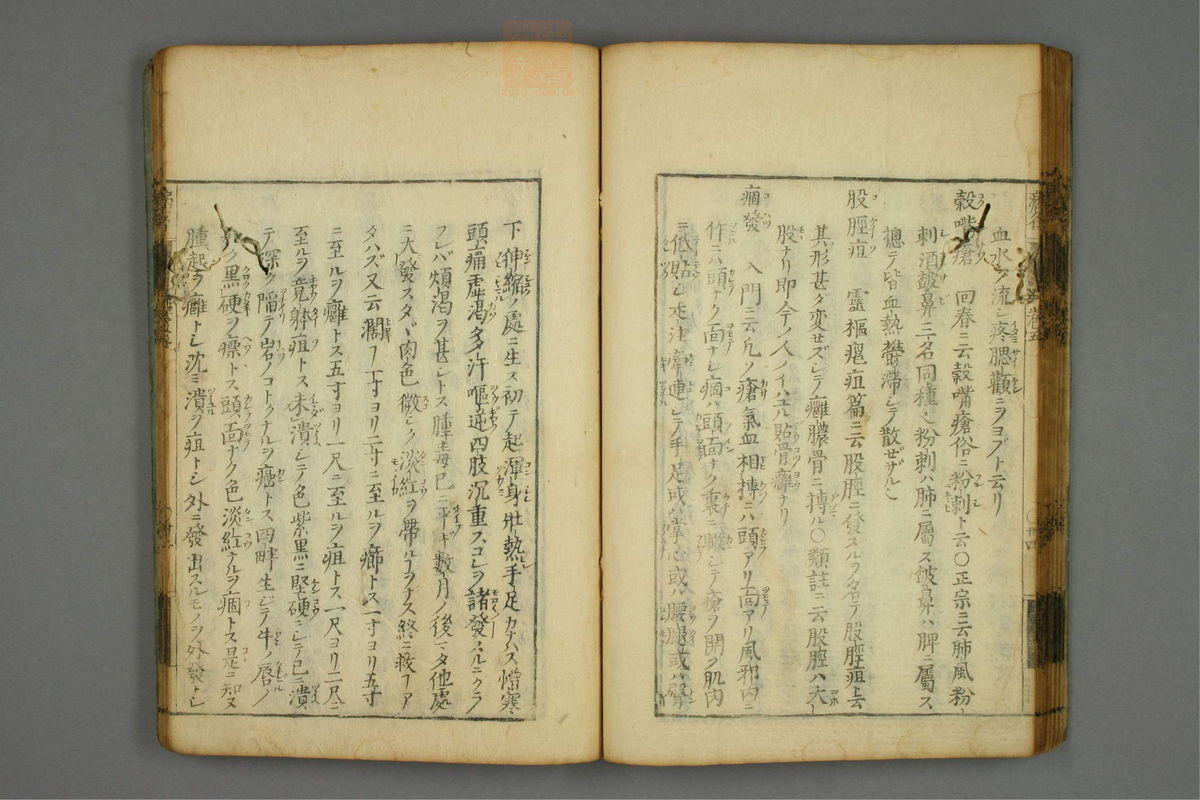 血水ヲ流シ疼腮顴ニヲヨブト云リ
穀嘴瘡 回春ニ云穀嘴瘡俗ニ粉刺ト云〇正宗ニ云肺風粉
刺酒皶鼻三名同種也粉刺ハ肺ニ屬ス皶鼻ハ脾ニ屬ス
摠テ皆血熱鬱滞シテ散ゼザル也
股脛疽 靈樞癰疽篇ニ云股脛ニ發スルヲ名テ股脛疽ト云
其形甚ダ変セズシテ癰膿骨ニ搏ル〇類註ニ云股脛ハ大
股ナリ即今ノ人ノイハユル貼骨癰ナリ
痼發 入門ニ云凡ノ瘡氣血相搏ニハ頭アリ面アリ風邪内ニ
作ニハ頭ナク面ナシ痼ハ頭面ナク裏ニ シテ瘡ヲ開ク肌肉
ニ低貼シ走注牽連シテ手足或ハ掌心或ハ腰腿或ハ臀
下伸縮ノ處ニ生ス初テ起渾身壯熱手足カナハス憎寒
頭痛虚渇多許嘔逆四肢沉重スコレヲ諸發 ルニクラ
フレバ煩渇ヲ甚シトス腫毒已ニ平キ數月ノ後マタ他處
ニ大發スタヾ肉色微シク淡紅ヲ帯ルヿヲナス終ニ救フヿア
タハズ又云濶ヿ一寸ヨリ二寸ニ至ルヲ癤トス一寸ヨリ五寸
ニ至ルヲ癰トス五寸ヨリ一尺ニ至ルヲ疽トス一尺ヨリ二尺ニ
至ルヲ竟躰疽トス未潰シテ色紫黒ニ堅硬ニシテ已ニ潰
テ深ク陥テ岩ノコトクナルヲ癌トス四畔生シテ牛ノ唇ノ
如ク黒硬ヲ瘭トス頭面ナク色淡紅ナルヲ痼トス是ニ知ヌ
腫起ヲ癰トシ沈ミ潰ヲ疽トシ外ニ發出スルモノヲ外發トシ